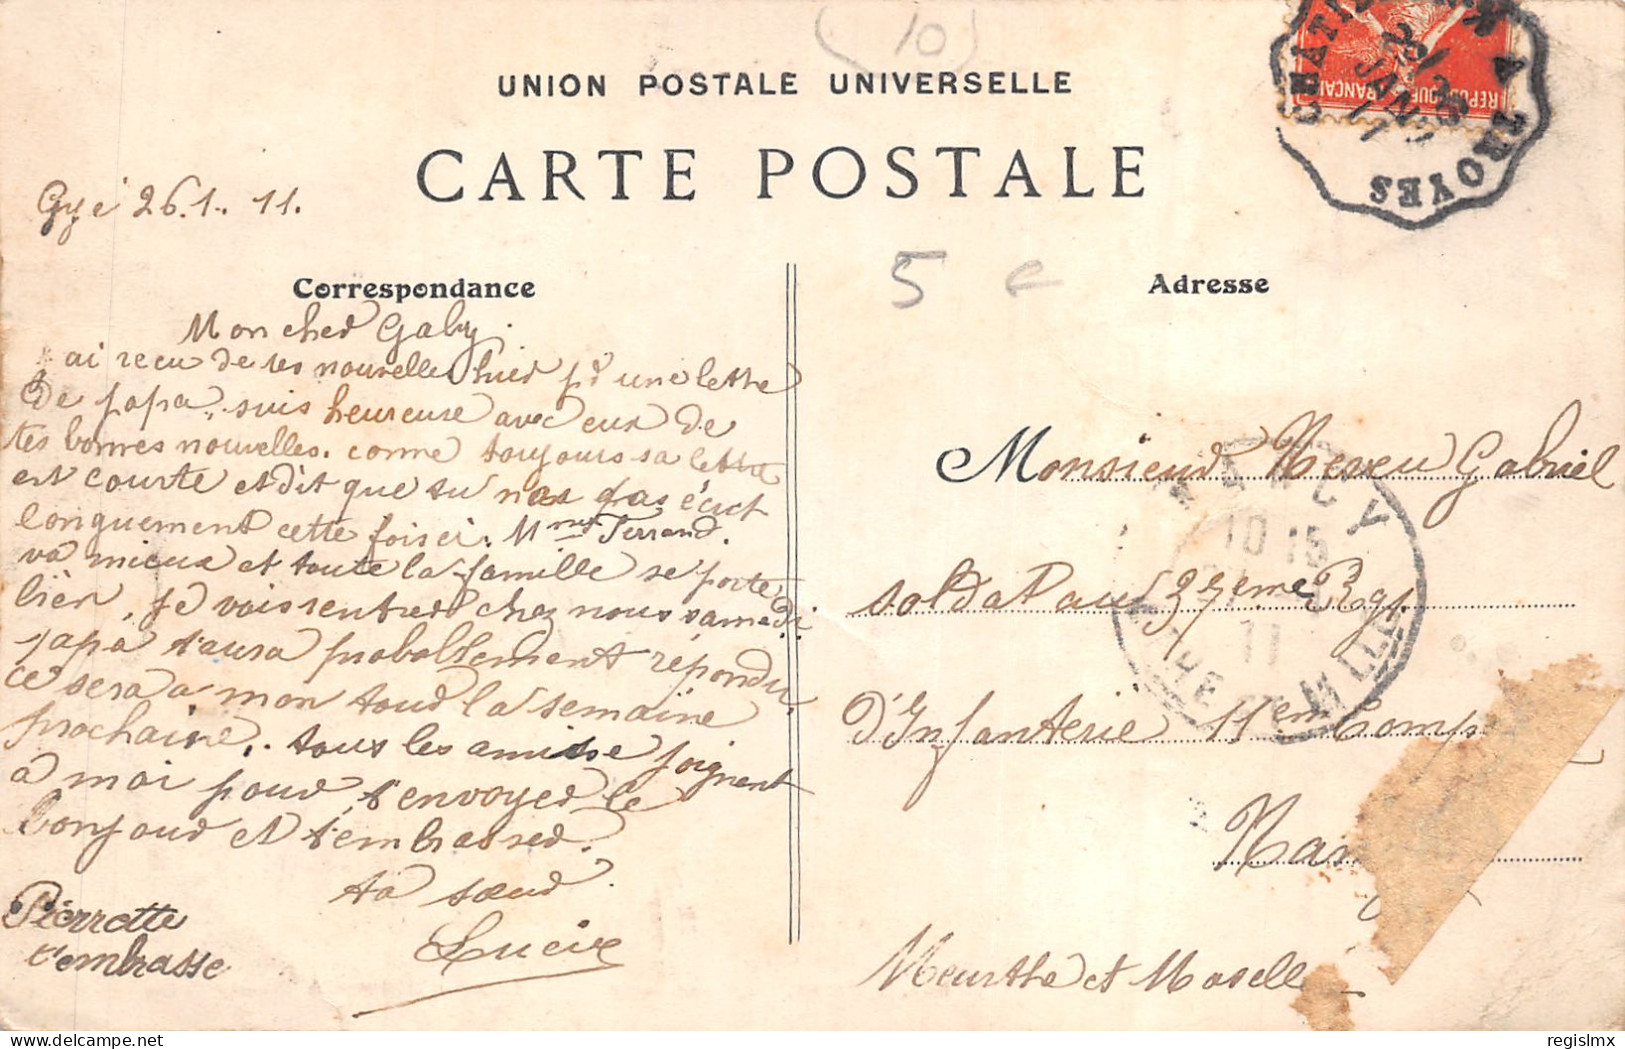 (10)
UNION POSTALE UNIVERSELLE
CARTE POSTALE
REPUBLIQUE FRANCAISE
CHATI
A TROYES
26
JANV
11
Gyé 26.1.11.
5 c
Correspondance
Adresse
Mon cher Gaby.
ai recu de tes nouvelles hier pr une lettre
De papa, suis heureuse avec eux de
tes bonnes nouvelles. comme toujours sa lettre
est courte et dit que tu nas pas écrit
longuement cette fois ci. Mme Ferrand.
va mieux et toute la famille se porte
bien, je vais rentrer chez nous samedi
papa t'aura probablement répondu
ce sera a mon tour la semaine
prochaine. tous les amis se joignent
a moi pour t'envoyer le
bonjour et t'embrasser.
ta sœur.
Lucie
Pierrette
t'embrasse
Monsieur Neveu Gabriel
soldat au 37eme Rgt.
d'Infanterie 11eme Comp
Nan
Meurthe et Moselle
NANCY
10 15
11
MEURTHE
regislmx